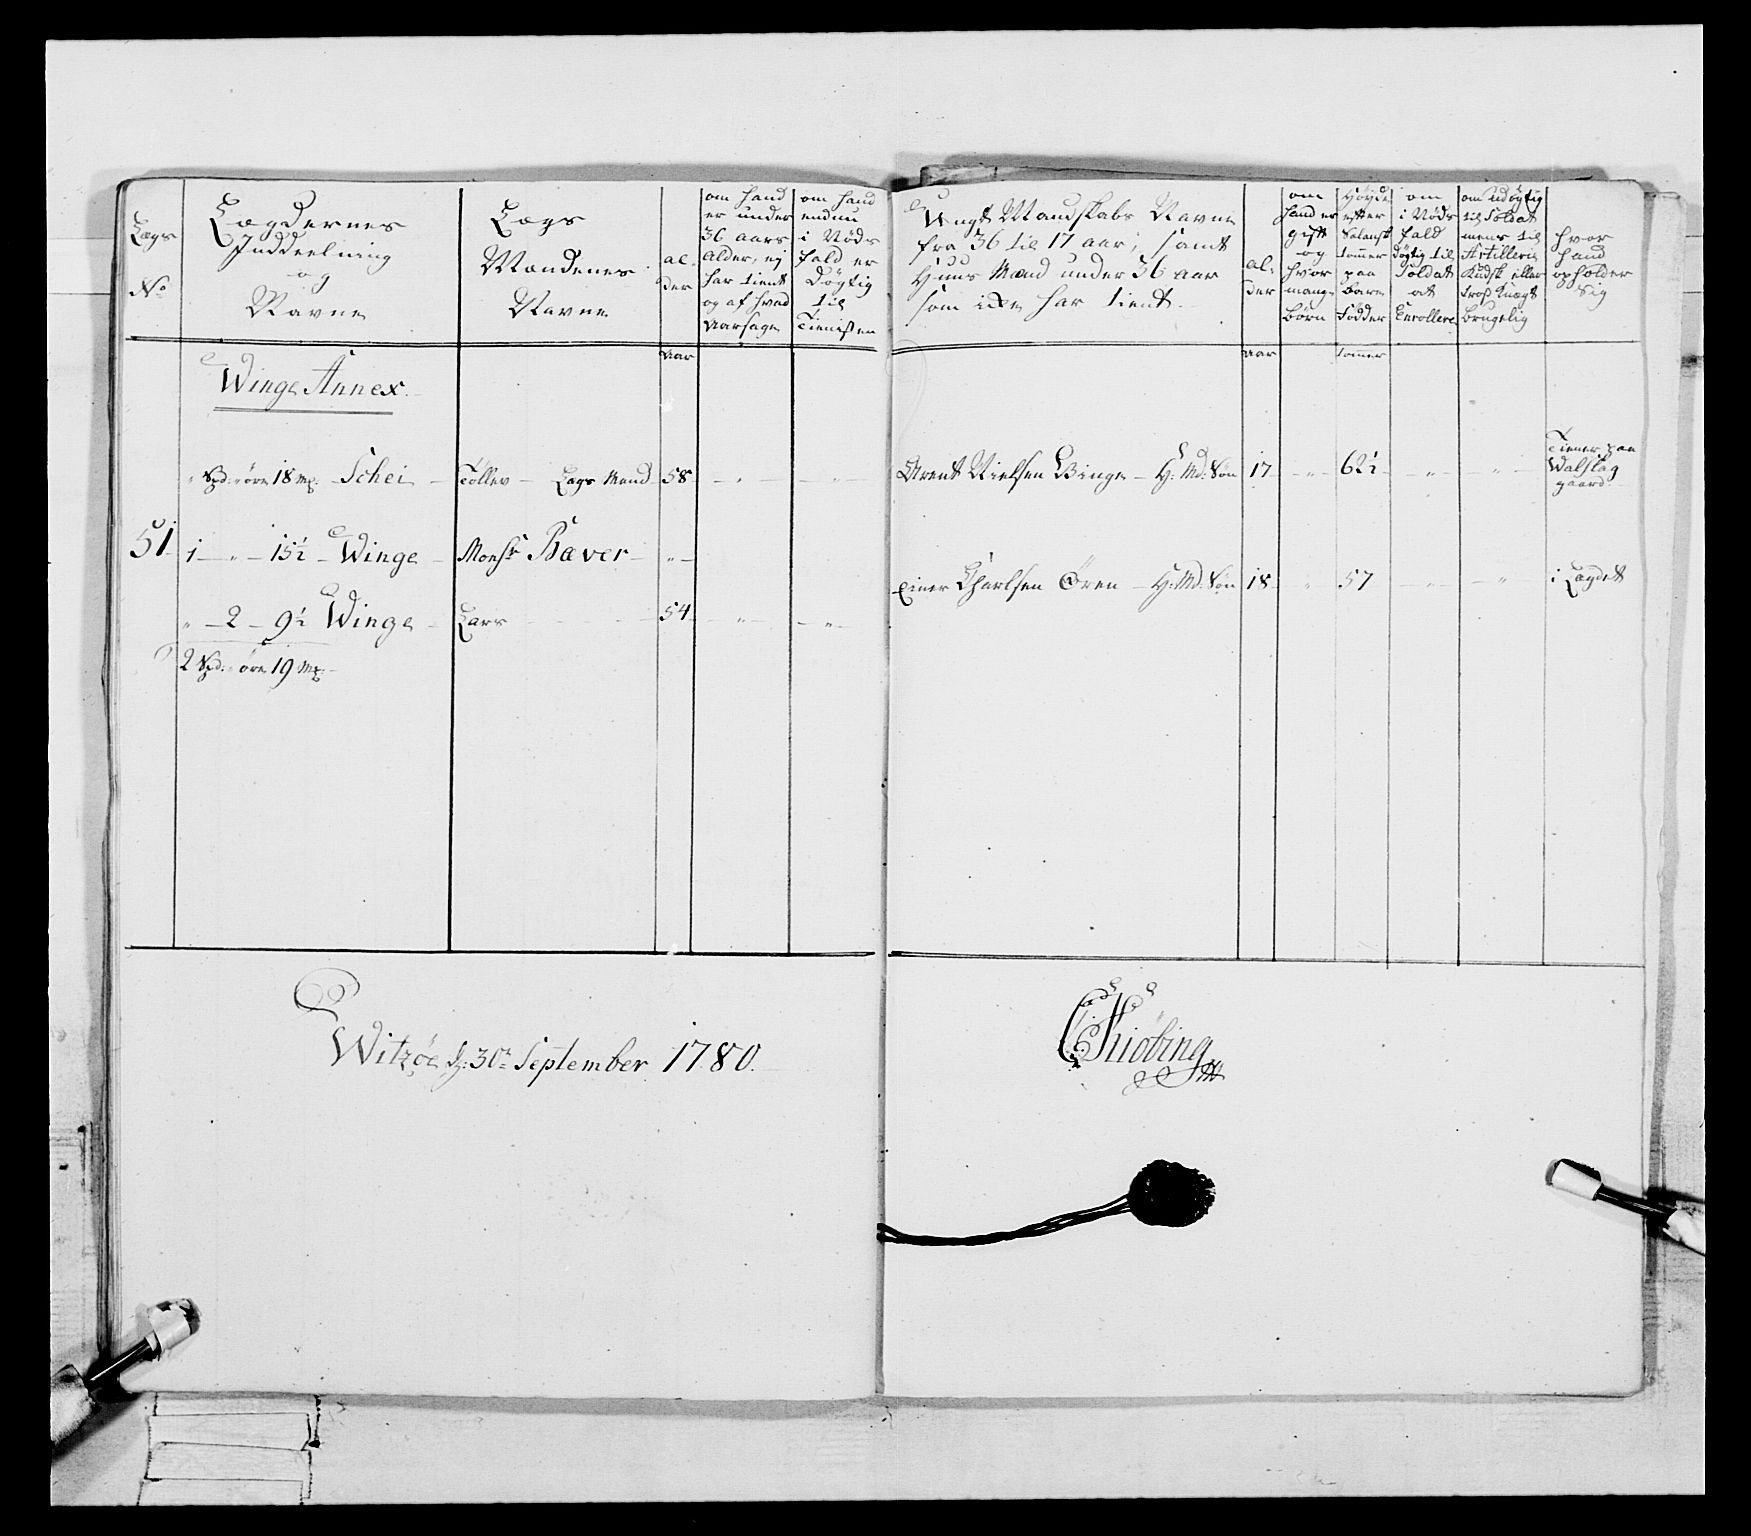 Lægs
No
Lægdernes
Inddeelning
og
Navne
Lægs
Mændenes
Navne
al-
der
om hand
er under
36 aars
Alder, ej
har tient
og af hvad
Aarsage
om hand
endnu
i Nøds
fald er
Døgtig
til
Tienesten
Ungt Mandskabs Navne
fra 36 til 17 aar; samt
Huus Mænd under 36 aar
som icke har tient.
al-
der
om
hand er
gift
og
hvor
mange
børn
Høyde
efter
Solansk
tommer
paa
bare
Fødder
om
i Nøds
fald
døgtig til
Soldat
at
Enrollere
om udøgtig
til Soldat
mens til
Artillerie
Kudsk eller
tros Knegt
brugelig
hvor
hand
opholder
sig
Aar
Aar
tommer
Winge Annex.
" Spd: " öre 18 Mp: Schei – Tollev – Lægs Mand 58 – " – – " –
Arent Nielsen Winge – H: Md: Søn 17 – " – 62½ – " – – " – Tiener paa
Walslag
gaard
51 1 – " – 15½ – Winge – Monsr Bæver – " –
Einer Charlsen Ören – H: Md: Søn 18 " 57 – " – – " – i Lægdet
" – 2 – 9½ Winge – Lars 54 – " – – " –
2 Spd: " öre 19 Mp: –
Witzøe d: 30te September 1780.
Kiöbing